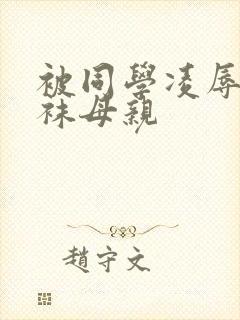 被同學凌辱
袜母親
趙守文